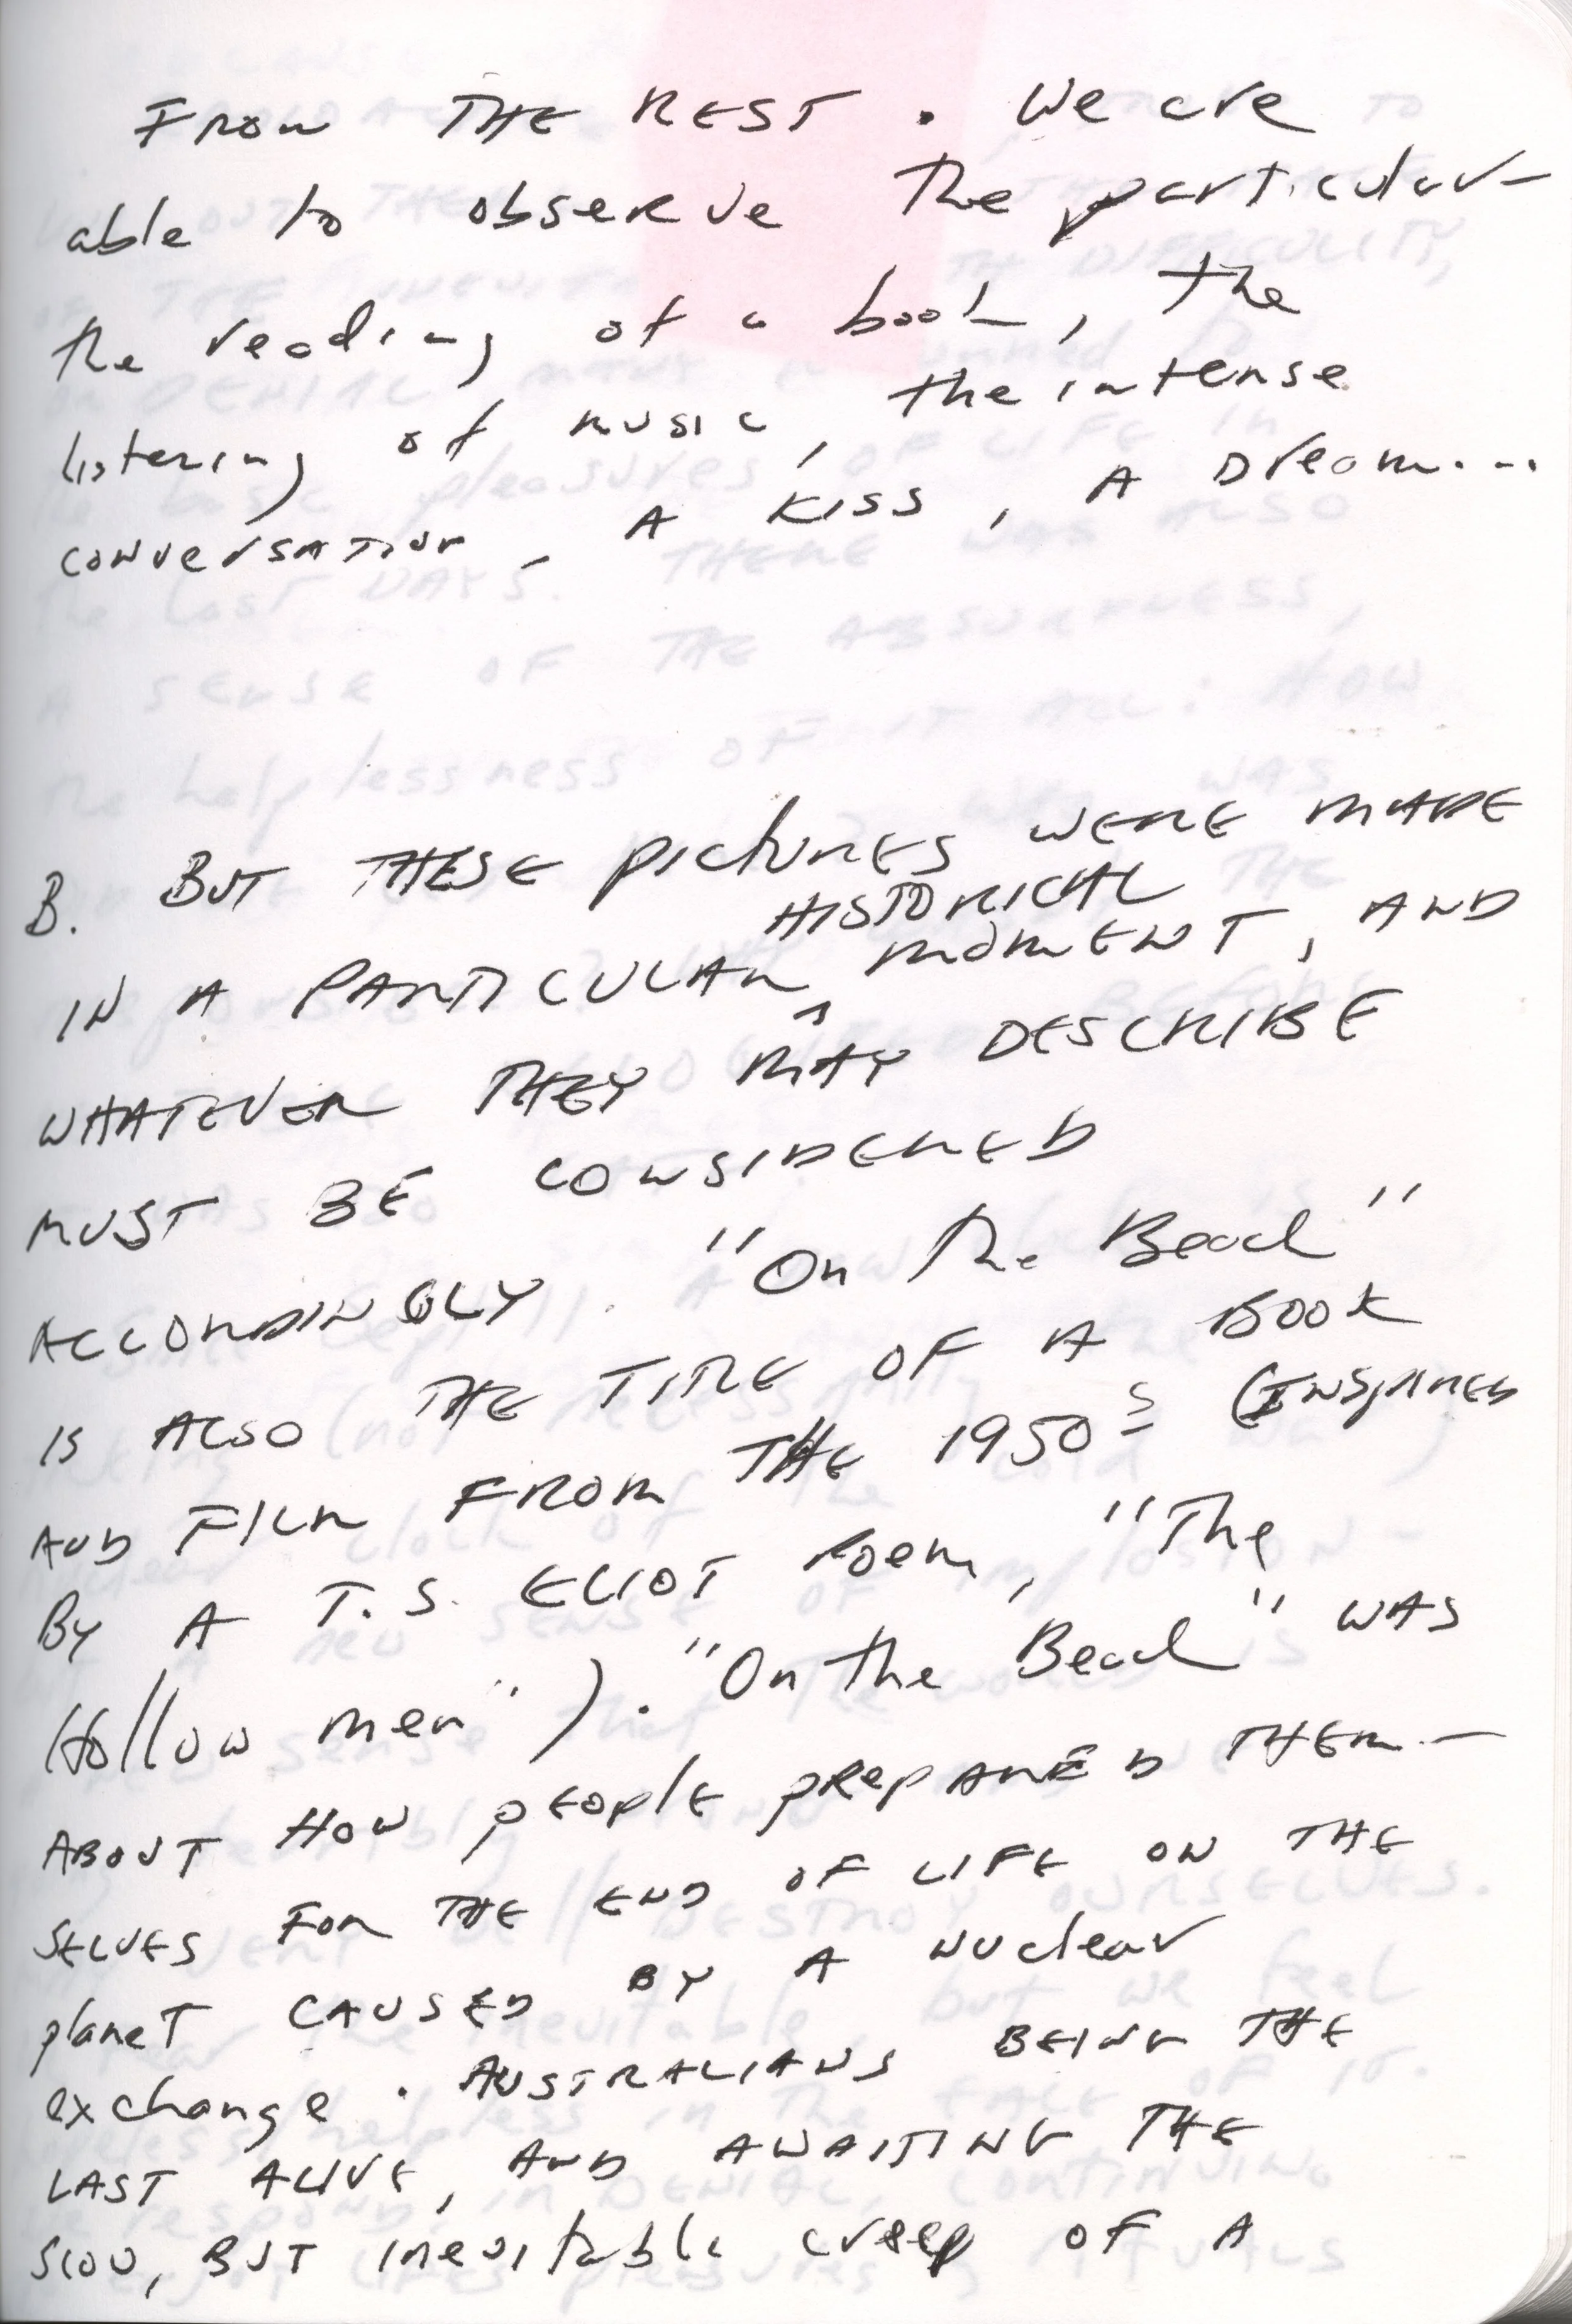 FROM THE REST. We are
able to observe the particular—
the reading of a book, the
listening of music, the intense
conversation, A KISS, A Dream...
B. BUT THESE pictures WERE MADE
IN A PARTICULAR HISTORICAL MOMENT, AND
WHATEVER THEY MAY DESCRIBE
MUST BE CONSIDERED
ACCORDINGLY. "On the Beach"
IS ALSO THE TITLE OF A BOOK
AND FILM FROM THE 1950s (INSPIRED
By A T.S. ELIOT Poem, "The
Hollow men"). "On the Beach" WAS
ABOUT HOW PEOPLE PREPARED THEM—
SELVES FOR THE END OF LIFE ON THE
planet CAUSED BY A Nuclear
exchange. AUSTRALIANS BEING THE
LAST ALIVE, AND AWAITING THE
SLOW, BUT inevitable creep OF A